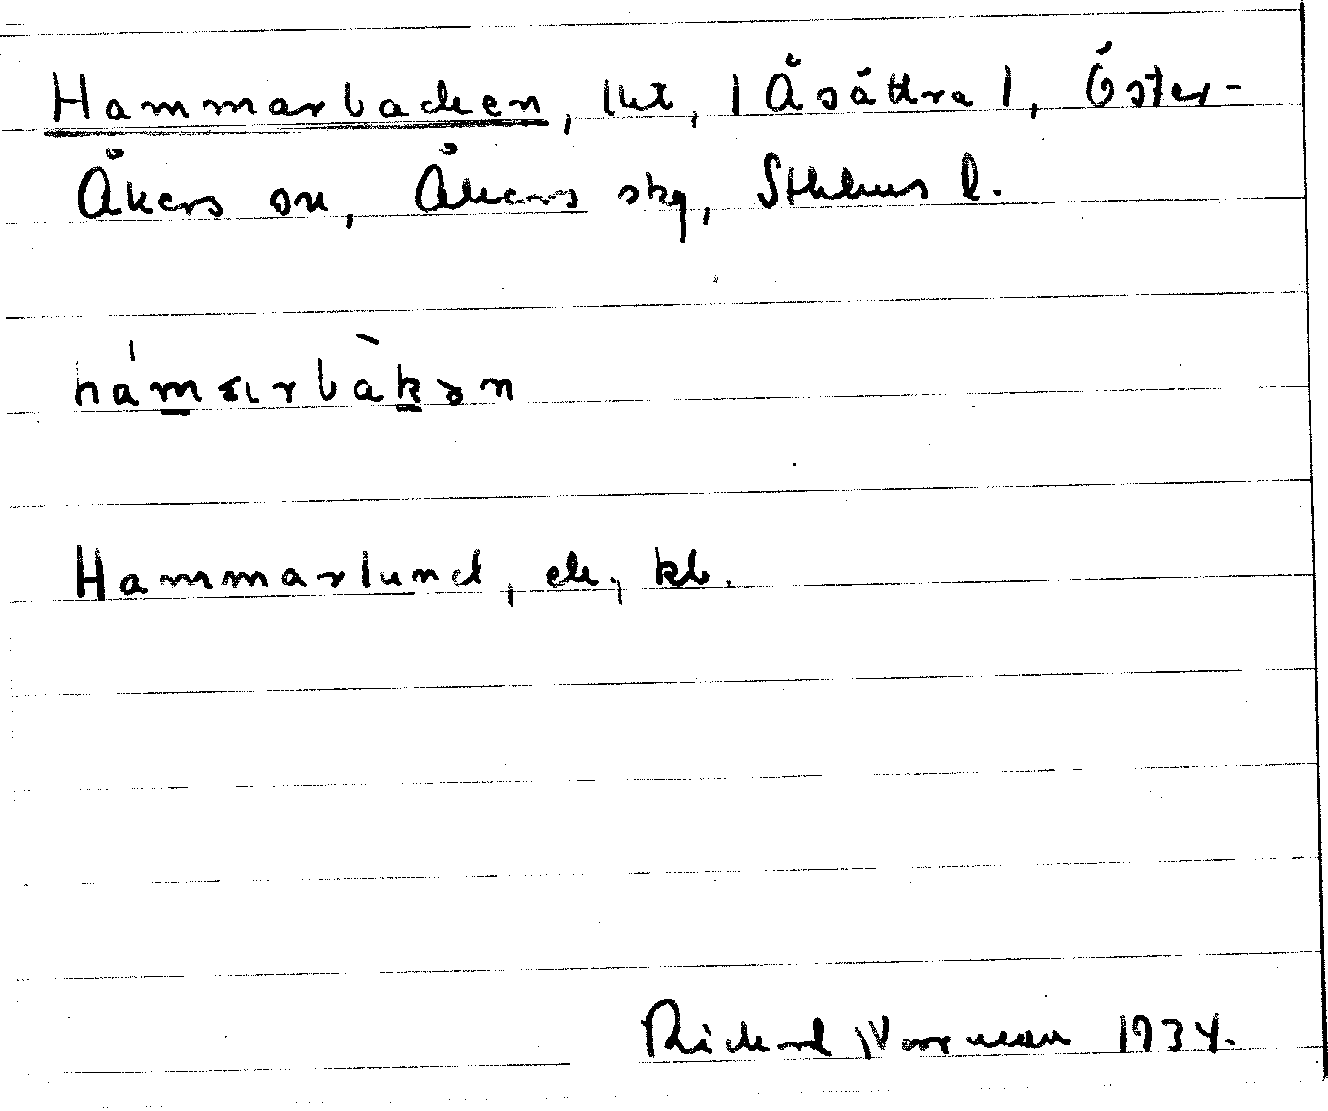 Hammarbacken, lht, | Åsättra |, Öster-
Åkers sn, Åkers skg, Sthlms l.
hám​aɪrbàkən
Hammarlund, ek, kb.
Rickard Norrman 1934.